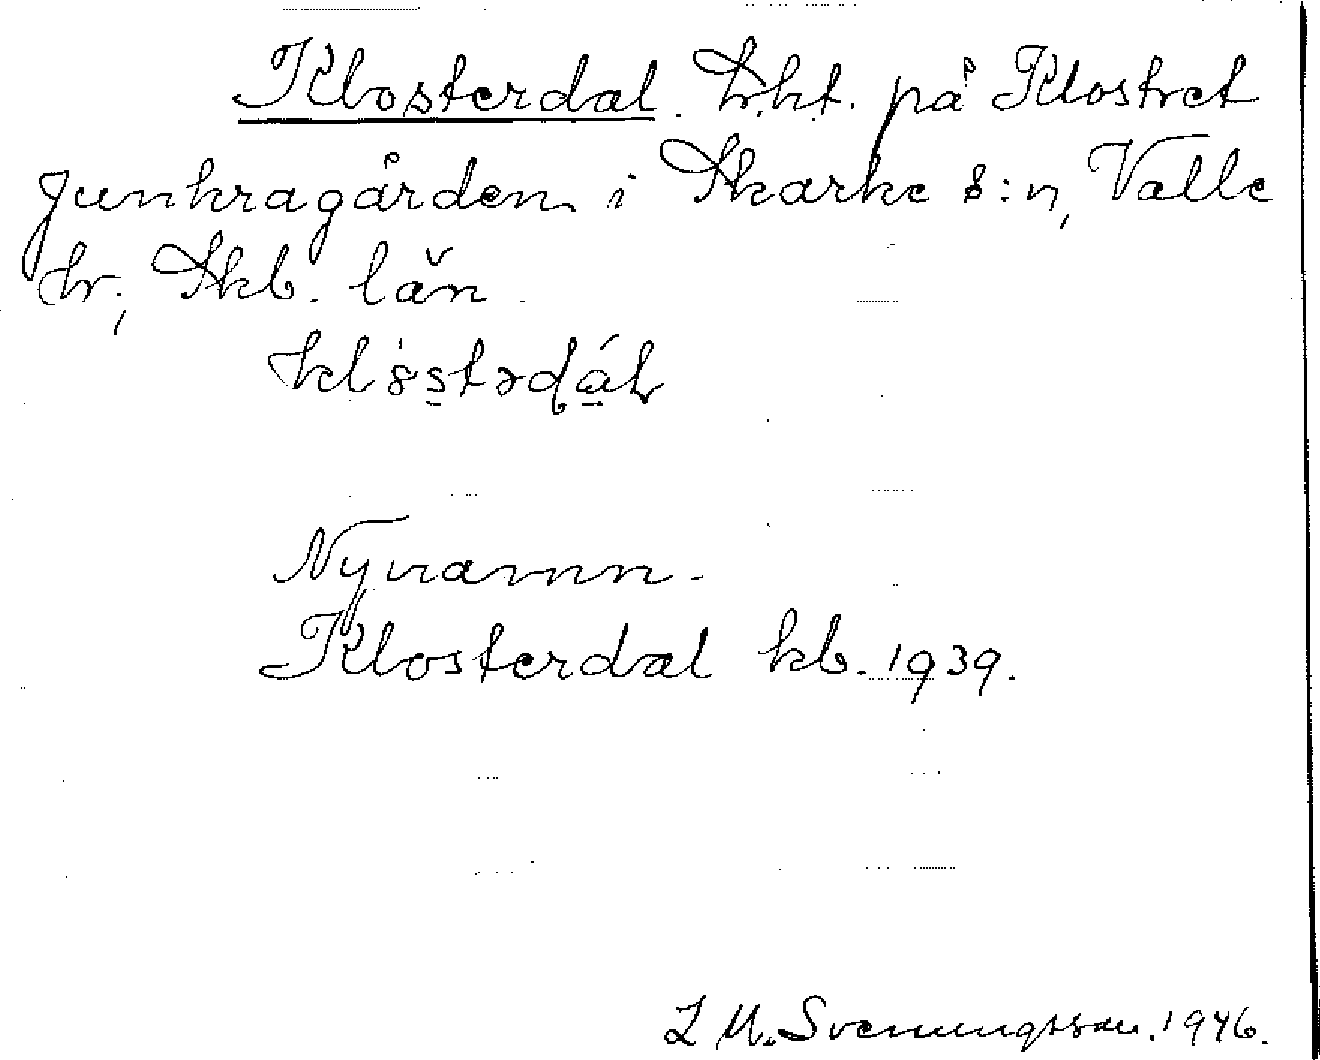 Klosterdal. lht. på Klostret
Junkragården i Skarke s:n, Valle
hr, Skb. län
Nynamn.
Klosterdal kb. 1939.
L M. Svenungsson. 1946.